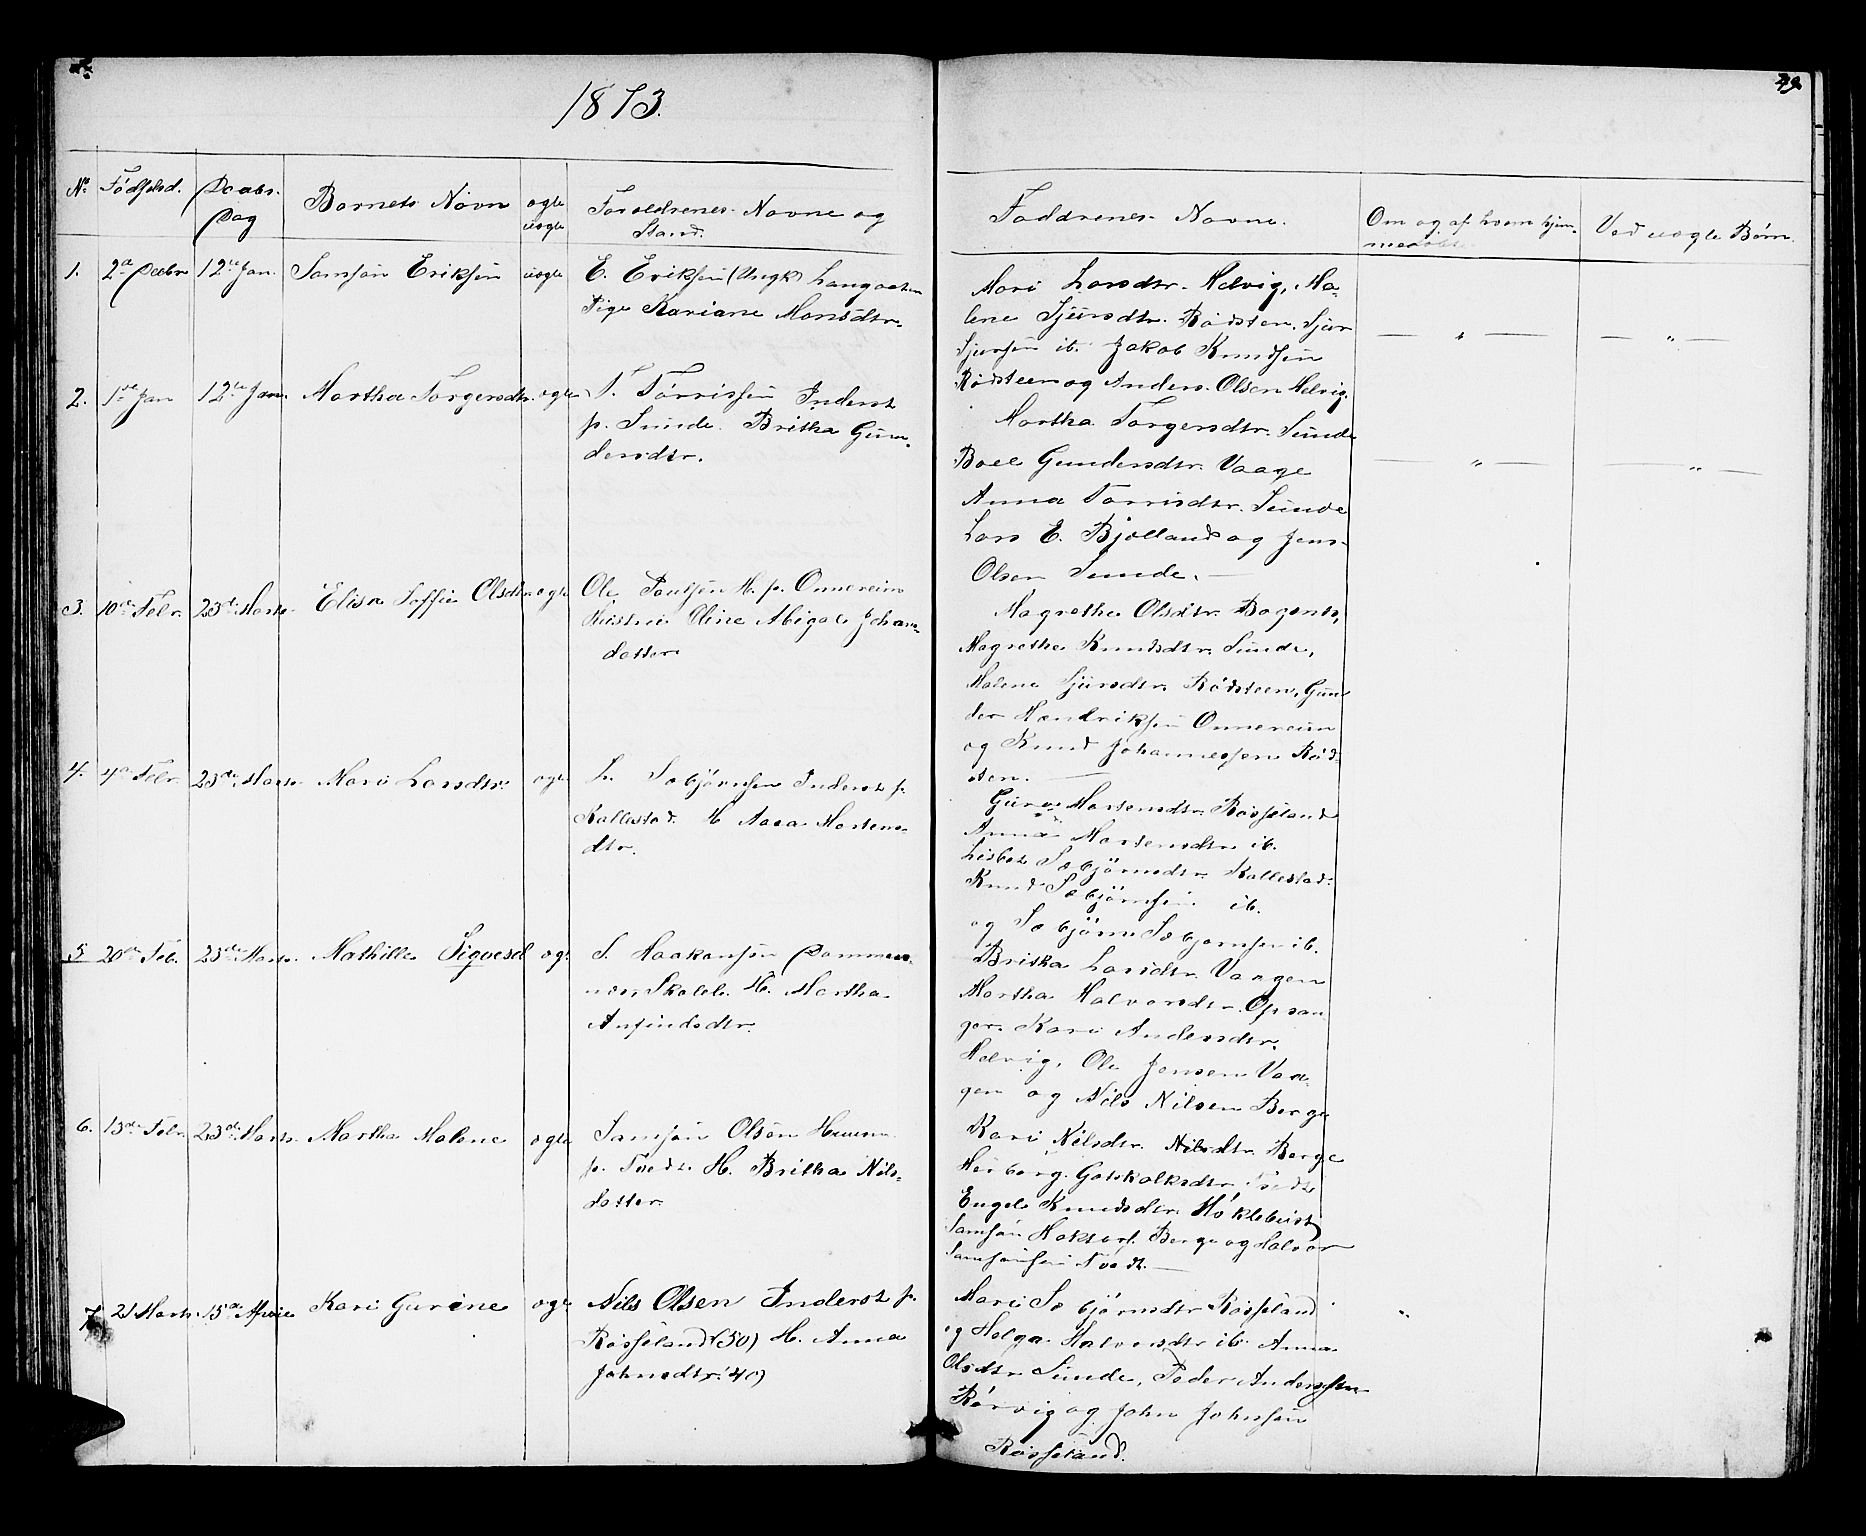 1873.
49
No Fødselsd. Daabs. Dag Barnets Navn ogte uogte Foreldrenes Navne og Stand. Faddrenes Navne. Om og af hvem hjem- Ved uogte Børn.
1. 2den Decbr 12te Jan. Samson Eriksen uogte E. Eriksen (Ungk) Langaaten
Pige Kariane Monsdtr.
Mari Larsdtr. Helvig, Ma-
lene Sjursdtr. Rødsten, Sjur
Sjursen ib. Jakob Knudsen
Rødsteen og Anders Olsen Helvig.
— " — — " —
2. 1ste Jan 12te Jan. Martha Torgersdtr. ogte T. Tørrissen Inderst
p. Sunde. Britha Gun-
dersdtr.
Martha Torgersdtr. Sunde
Boel Gundersdtr. Vaage
Anna Torrisdtr. Sunde
Lars E. Bjølland og Jens
Olsen Sunde. —
— " — — " —
3. 10de Febr. 23de Marts Elisa Soffie Olsdtr. ogte Ole Poulsen H. p. Omnereim
Hustru Oline Abigal Johans-
datter
Magrethe Olsdtr. Bogsnes,
Magrethe Knudsdtr. Sunde,
Malene Sjursdtr. Rødsteen, Gun-
der Hendriksen Omnereim
og Knud Johannessen Rød-
sten. —
4. 4de Febr. 23de Marts Mari Larsdtr. ogte L. Sæbjørnsen Inderst p.
Kallestad. H Aasa Mortens-
dtr.
Guroe Mortensdtr. Røsseland
Anna Mortensdtr ib.
Lisbet Sæbjørnsdtr Kallestad.
Knud Sæbjørnsen ib.
og Sæbjørn Sæbjørnsen ib.
5 20de Feb. 23de Marts. Mathilde Sigvesd ogt. S. Haakonsen Dommers-
H. Martha
Anfindsdtr.
Britha Larsdtr. Vaagen
Martha Halvorsdtr. Opsan-
ger. Kari Andersdtr.
Helvig, Ole Jensen Vaa-
gen og Nils Nilsen Berge
6. 13de Febr. 23de Marts. Martha Malene ogte Samson Olsen Huusm.
p. Tvedt H. Britha Nils-
datter.
Kari Nilsdtr. Nilsdtr. Berge
Herborg Gotskalksdtr. Tvedt
Engel Knudsdtr. Høklebust
Samson Berge og Halvor
Samsonsen Tvedt. —
7. 21 Marts. 15de April Kari Gurine ogte Nils Olsen Inderst p.
Røsseland (50) H. Anna
Johnsdtr. (40)
Mari Sæbjørnsdtr Røsseland
og Helga Halvorsdtr ib. Anna
Olsdtr. Sunde, Peder Andersen
Rørvig og John Johnsen
Røsseland.
"